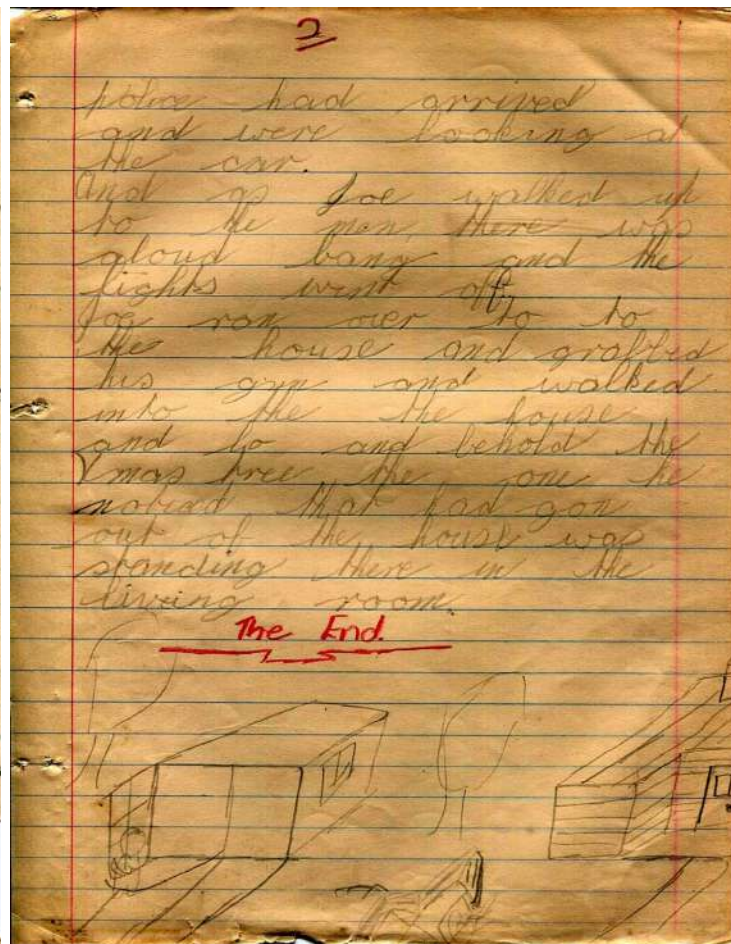 2
police had arrived
and were looking at
the car.
And as Joe walked up
to the men, there was
aloud bang and the
lights went off,
Joe ran over to to
the house and grabbed
his gun and walked
into the the house
and lo and behold the
Xmas tree the one he
noticed that had gon
out of the house was
standing there in the
living room.
The End.